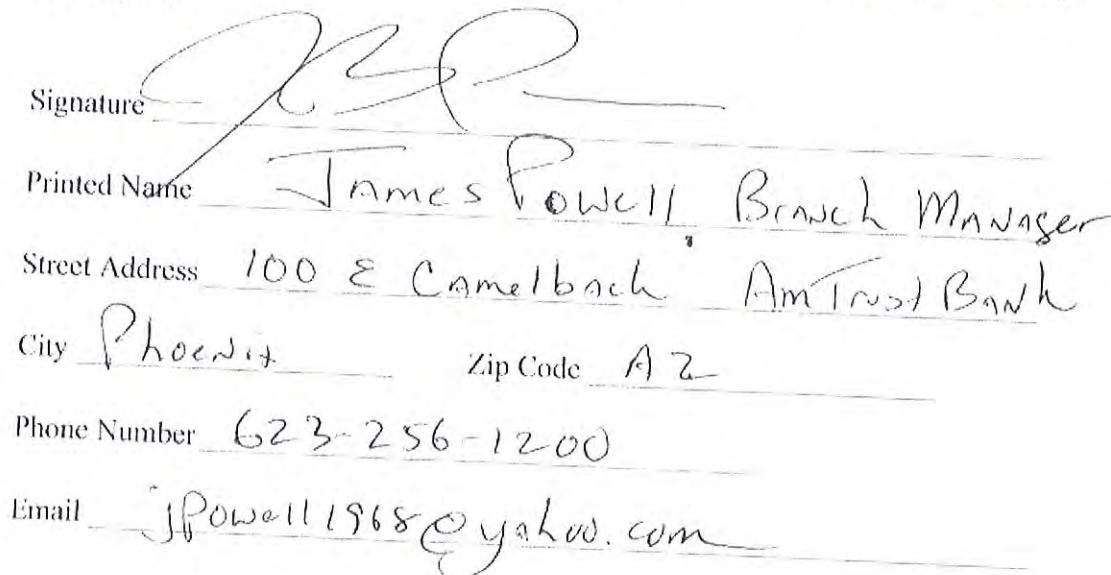 Signature
Printed Name James Powell, Branch Manager
Street Address 100 E Camelback AmTrust Bank
City Phoenix Zip Code AZ
Phone Number 623-256-1200
Email jPowell1968@yahoo.com